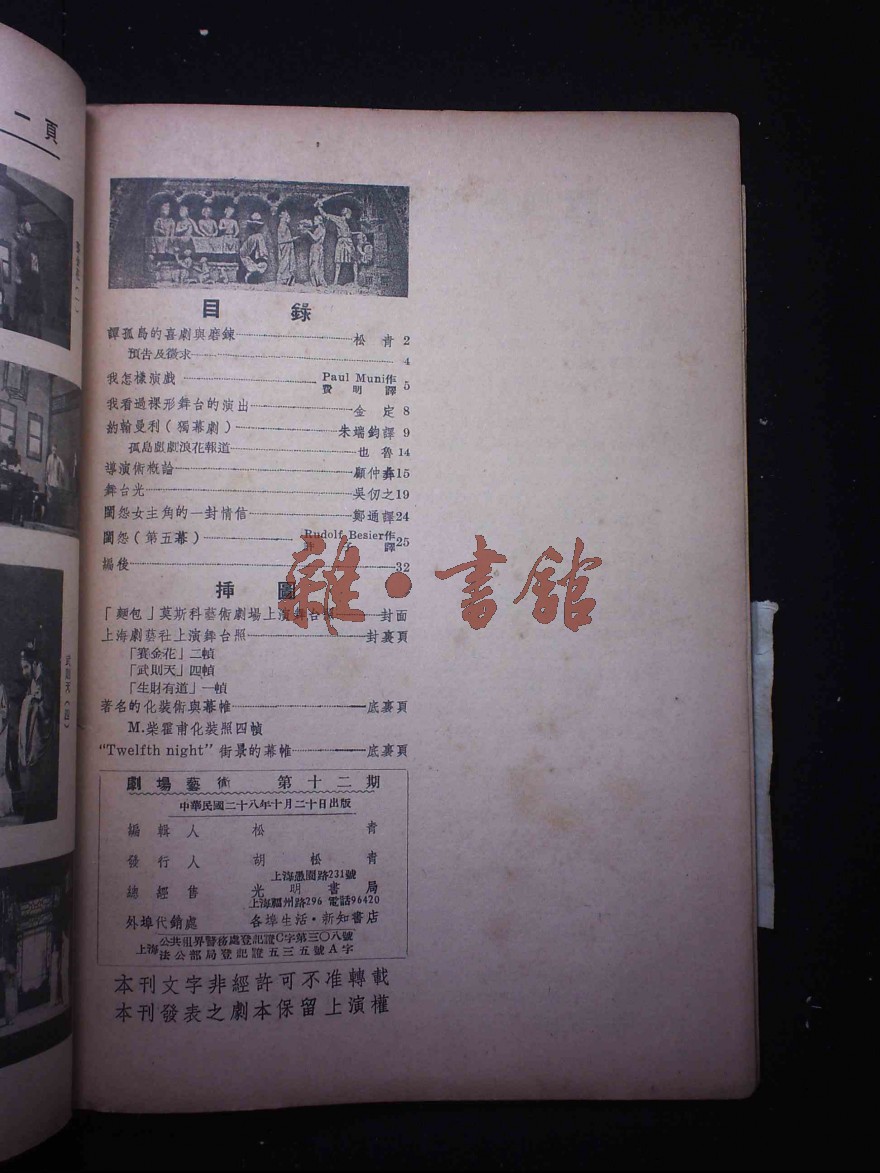 一頁
武則天
目錄
譚孤島的喜劇與磨鍊 松青 2
預告及徵求 4
我怎樣演戲 Paul Muni作 費明譯 5
我看過裸形舞台的演出 金定 8
約翰曼利(獨幕劇) 朱端鈞譯 9
孤島戲劇浪花報道 也魯 14
導演術概論 顧仲彝 15
舞台光 吳仞之 19
閨怨女主角的一封情信 鄭通譯 24
閨怨(第五幕) Rudolf Besier作 譯 25
編後 32
插圖
「麵包」莫斯科藝術劇場上演舞台照 封面
上海劇藝社上演舞台照 封裏頁
「賽金花」二幀
「武則天」四幀
「生財有道」一幀
著名的化裝術與幕帷 底裏頁
M.柴霍甫化裝照四幀
“Twelfth night”街景的幕帷 底裏頁
劇場藝術 第十二期
中華民國二十八年十月二十日出版
編輯人 松青
發行人 胡松青
上海愚園路231號
總經售 光明書局
上海福州路296 電話96420
外埠代銷處 各埠生活·新知書店
上海公共租界警務處登記證C字第三〇八號
法公部局登記證五三五號A字
本刊文字非經許可不准轉載
本刊發表之劇本保留上演權
雜·書館